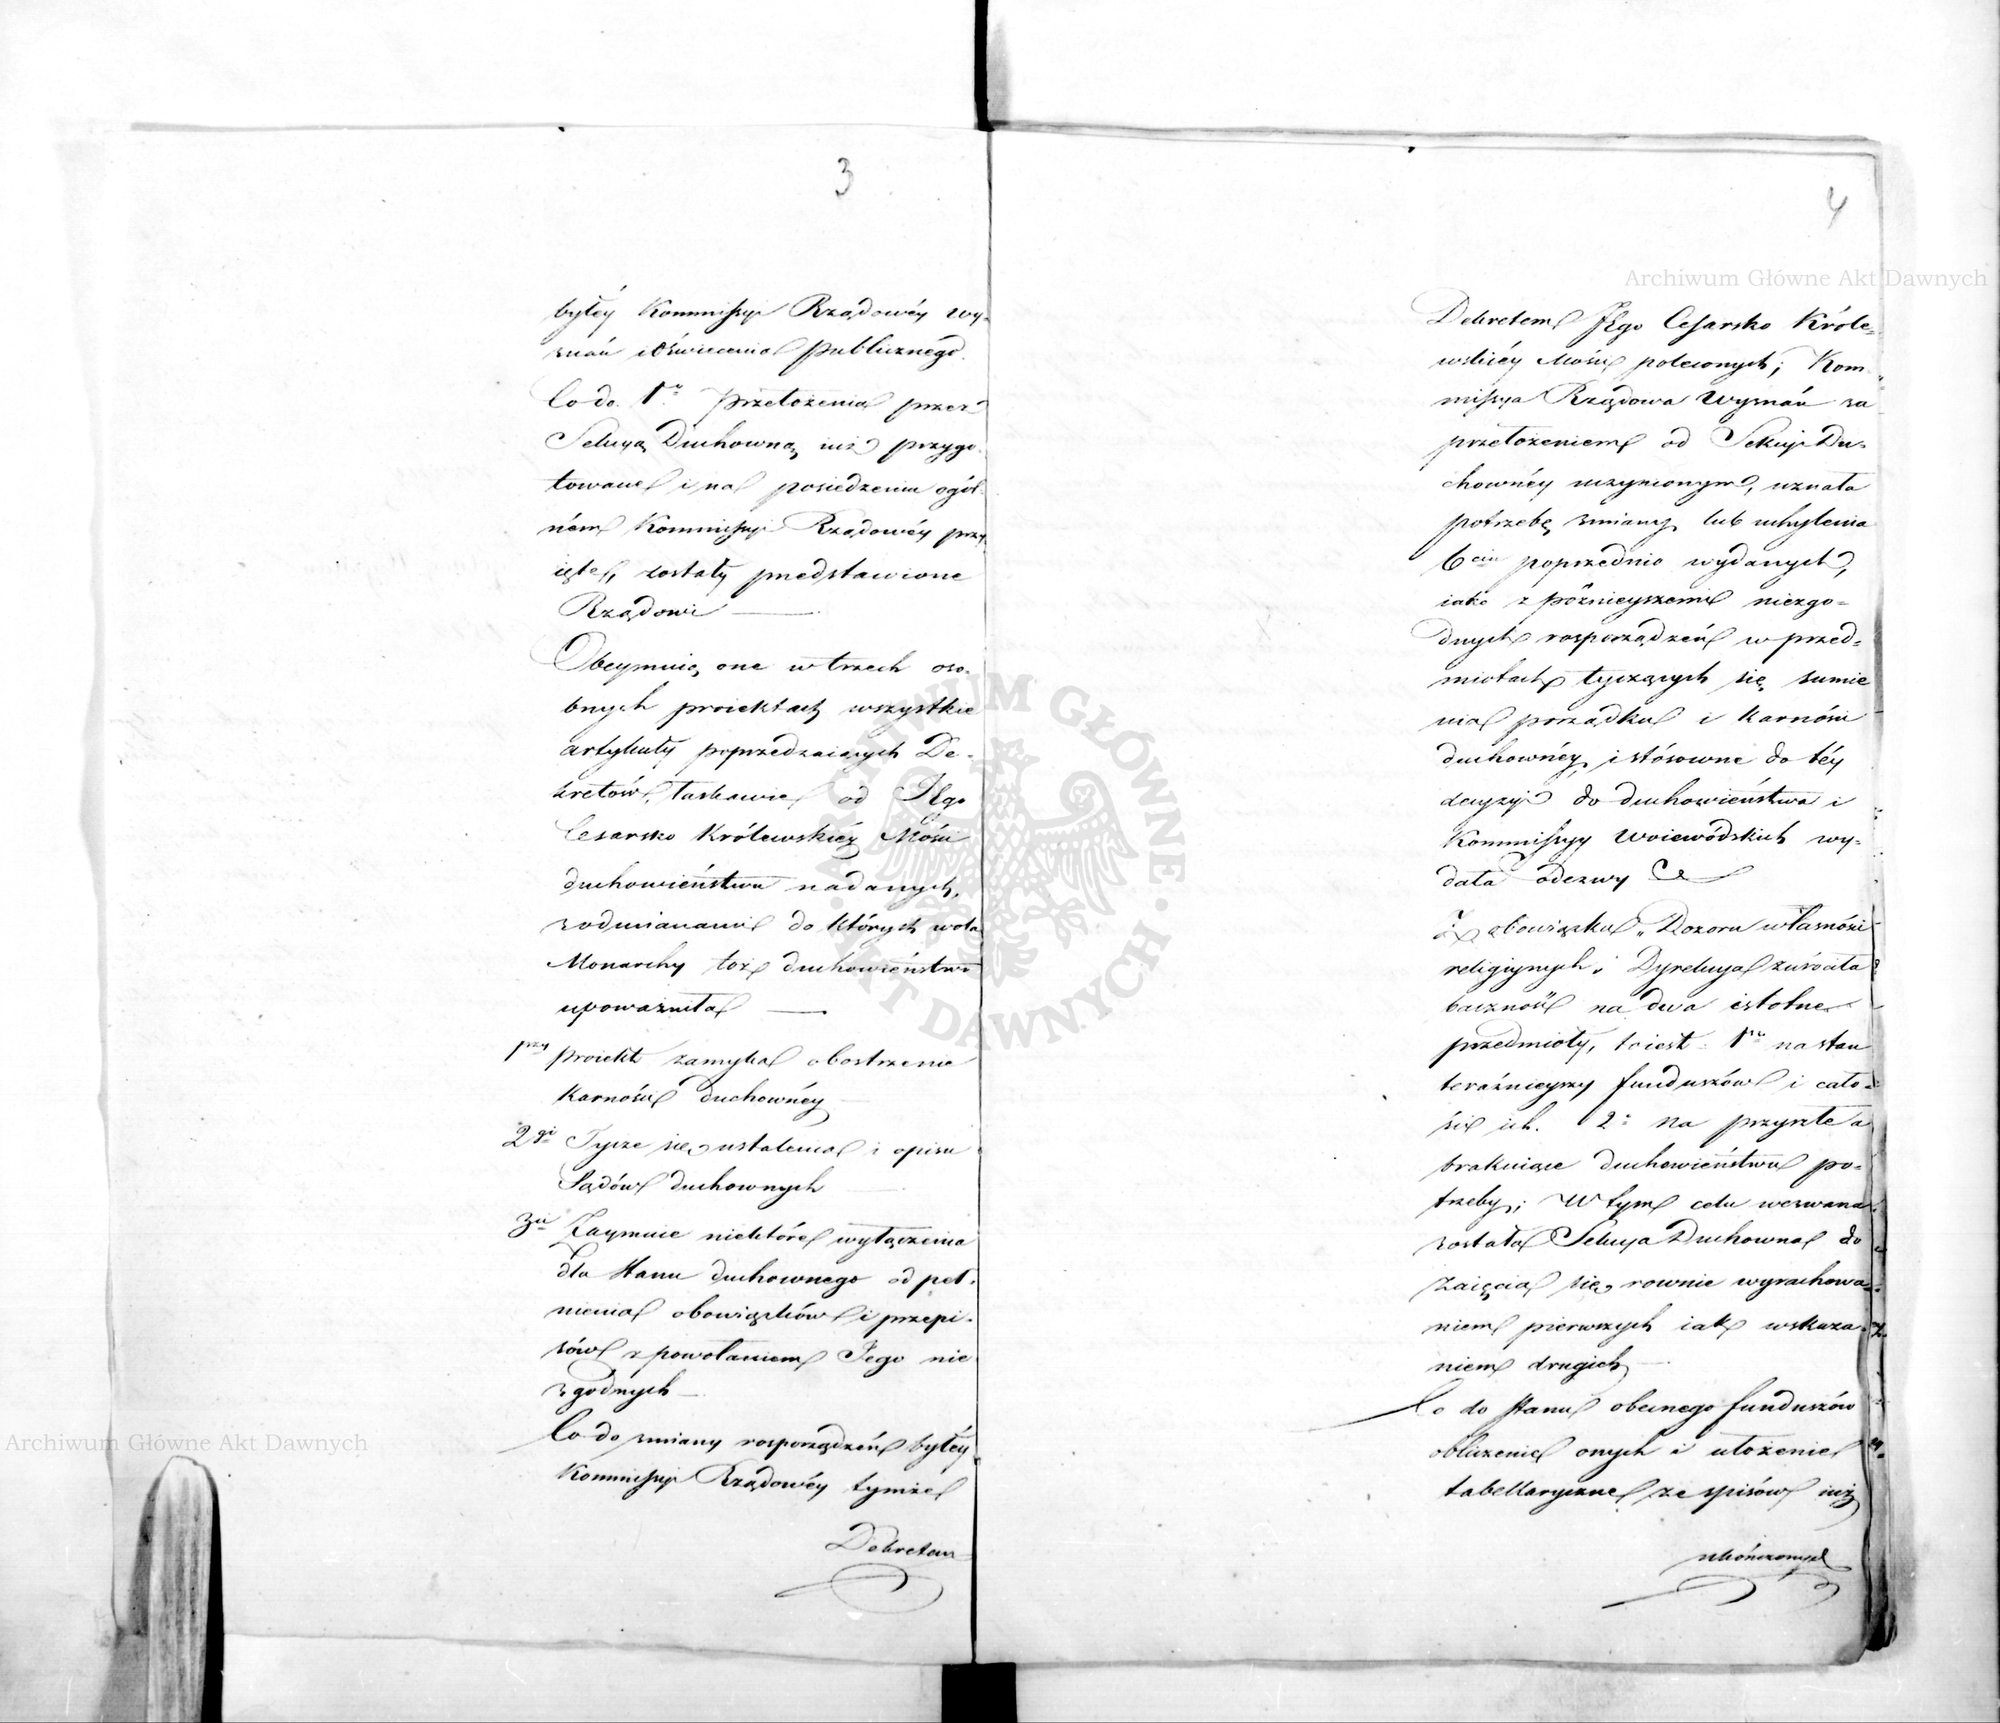 3
byłéy Kommissyi Rządowéy wy-
znań i Oświecenia publicznego.
Co do 1º Przełożenia przez
Sekcyą Duchowną iuż przygo-
towane i na posiedzeniu ogól-
ném Kommissyi Rządowéy przy-
ięte, zostały przedstawione
Rządowi
Obeymuią one w trzech oso-
bnych proiektach wszystkie
artykuły poprzedzaiących De-
kretów, łaskawie od JEgo
Cesarsko Królewskiéy Mości
duchowieństwu nadanych,
z odmianami do których wola
Monarchy toż duchowieństwo
upoważniła
1szy proiekt zamyka obostrzenie
Karności duchownéy
2gi Tycze się ustalenia i opisu
Sądów duchownych
3ci Zaymuie niektóre wyłączenia
dla stanu duchownego od peł-
nienia obowiązków i przepi-
sów z powołaniem Jego nie
zgodnych
Co do zmiany rosporządzeń byłéy
Kommissyi Rządowéy tymże
Dekretem
4
Dekretem JEgo Cesarsko Króle-
wskiéy Mości poleconych; Kom-
missya Rządowa Wyznań za
przełożeniem od Sekcyi Du-
chownéy uczynionym, uznała
potrzebę zmiany lub uchylenia
6ciu poprzednio wydanych,
iako z późnieyszemi niezgo-
dnych rosporządzeń w przed-
miotach tyczących się sumie
nia porządku i karności
duchownéy, i stósowne do téy
decyzyi do duchowieństwa i
Kommissyy Woiewódskich wy-
dała odezwy
Z obowiązku „Dozoru własności
religiynych" Dyrekcya zwróciła
baczność na dwa istotne
przedmioty, to iest: 1º na stan
teraźnieyszy funduszów i cało-
ści ich. 2º na przyszłe a
brakuiące duchowieństwu po-
trzeby; W tym celu wezwana
została Sekcya Duchowna do
zaięcia się rownie wyrachowa-
niem pierwszych iak wskaza-
niem drugich
Co do stanu obecnego funduszów
obliczenie onych i ułożenie
tabellaryczne ze spisów iuż
ukończonych
Archiwum Główne Akt Dawnych
Archiwum Główne Akt Dawnych
ARCHIWUM GŁÓWNE AKT DAWNYCH